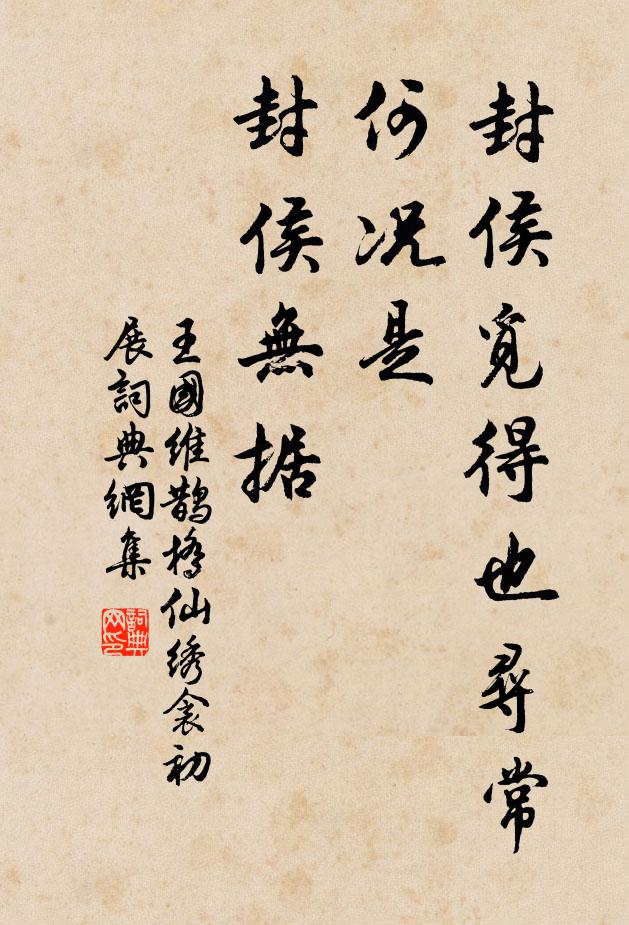 封侯覓得也尋常
何况是
封侯無据
王國維鵲橋仙绣衾初
展詞典網集
詞典
网印